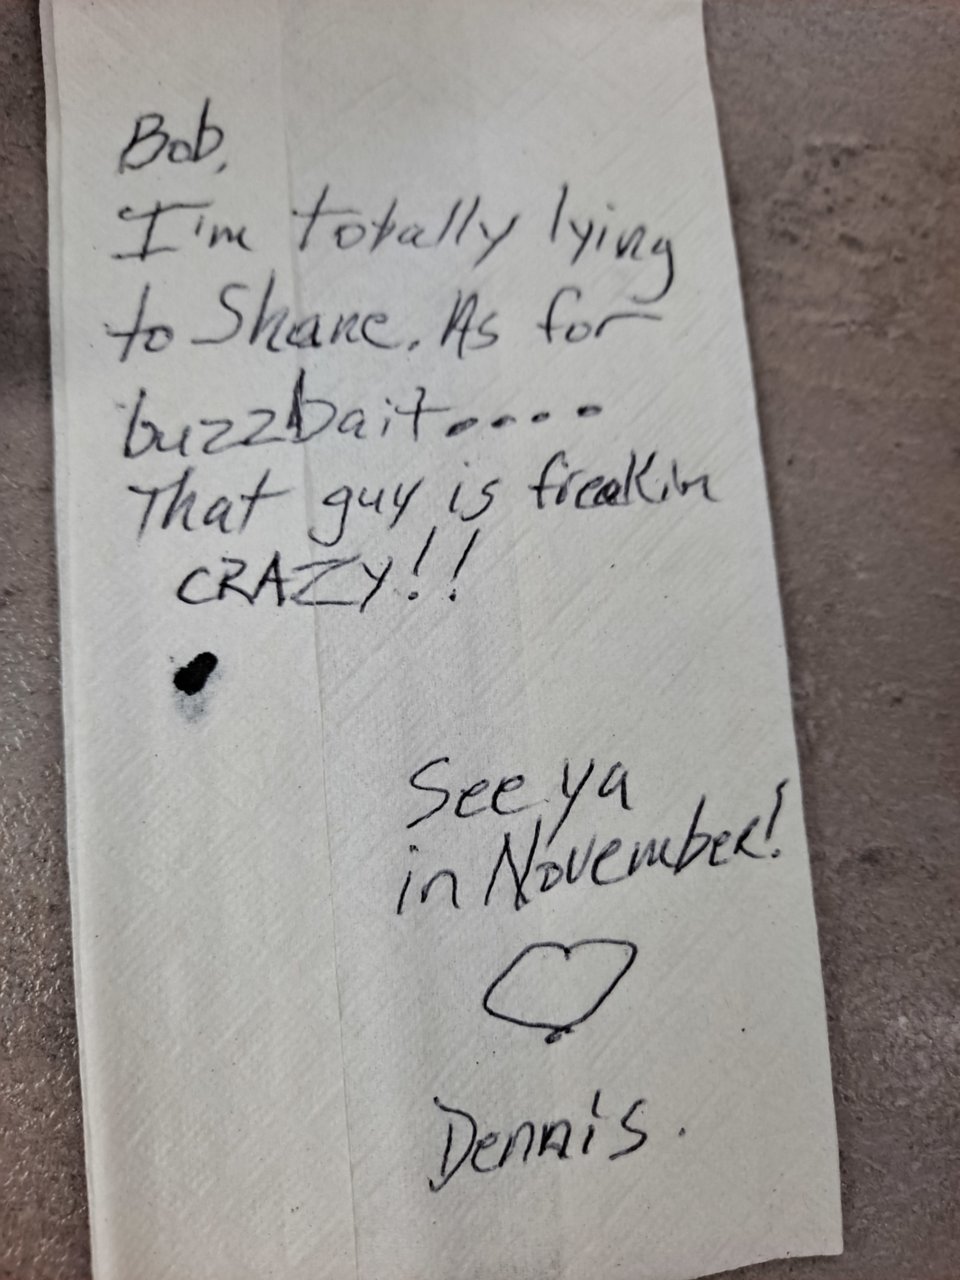 Bob,
I'm totally lying
to Shane. As for
buzzbait....
That guy is freakin
CRAZY!!
See ya
in November!
Dennis.